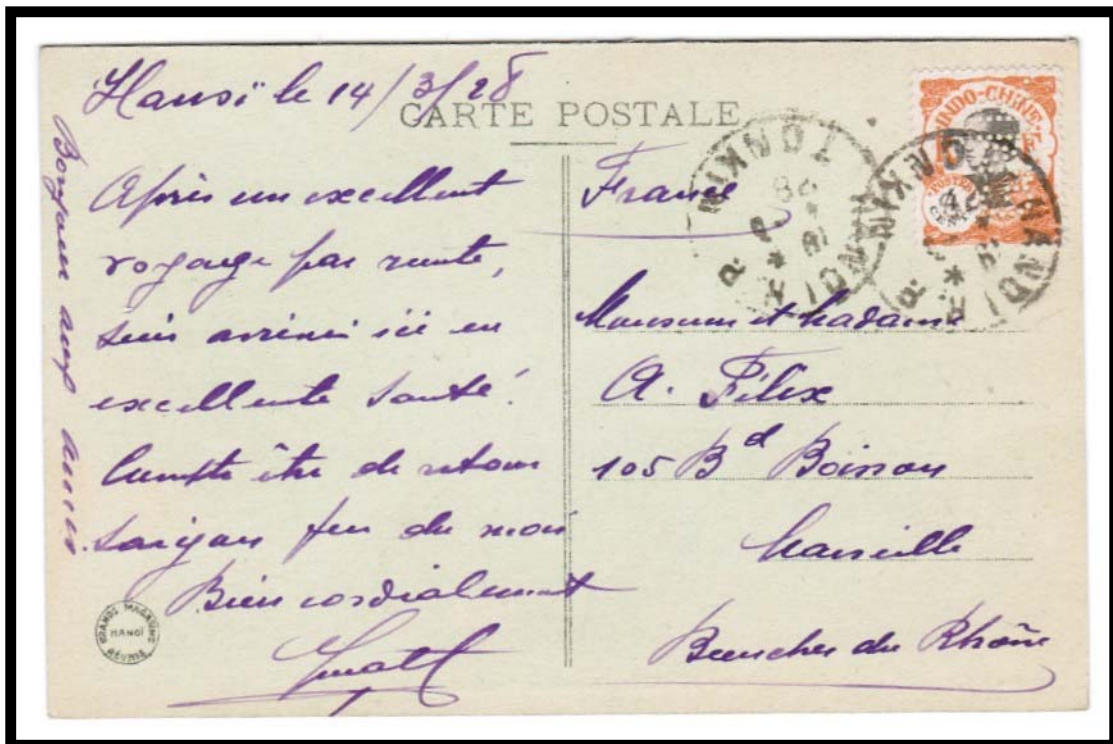 Hanoï le 14/3/28
CARTE POSTALE
Après un excellent
voyage par route,
suis arrivé ici en
excellente santé.
Compte être de retour
Saigon fin du mois
Bien cordialement
Bonjour aux amis
GRANDS MAGASINS
HANOÏ
RÉUNIS
France
Monsieur et Madame
A. Félix
105 Bd Boisson
Marseille
Bouches du Rhône
INDO-CHINE
RF
POSTES
CENTS
HANOI R.P.
TONKIN
HANOI R.P.
TONKIN